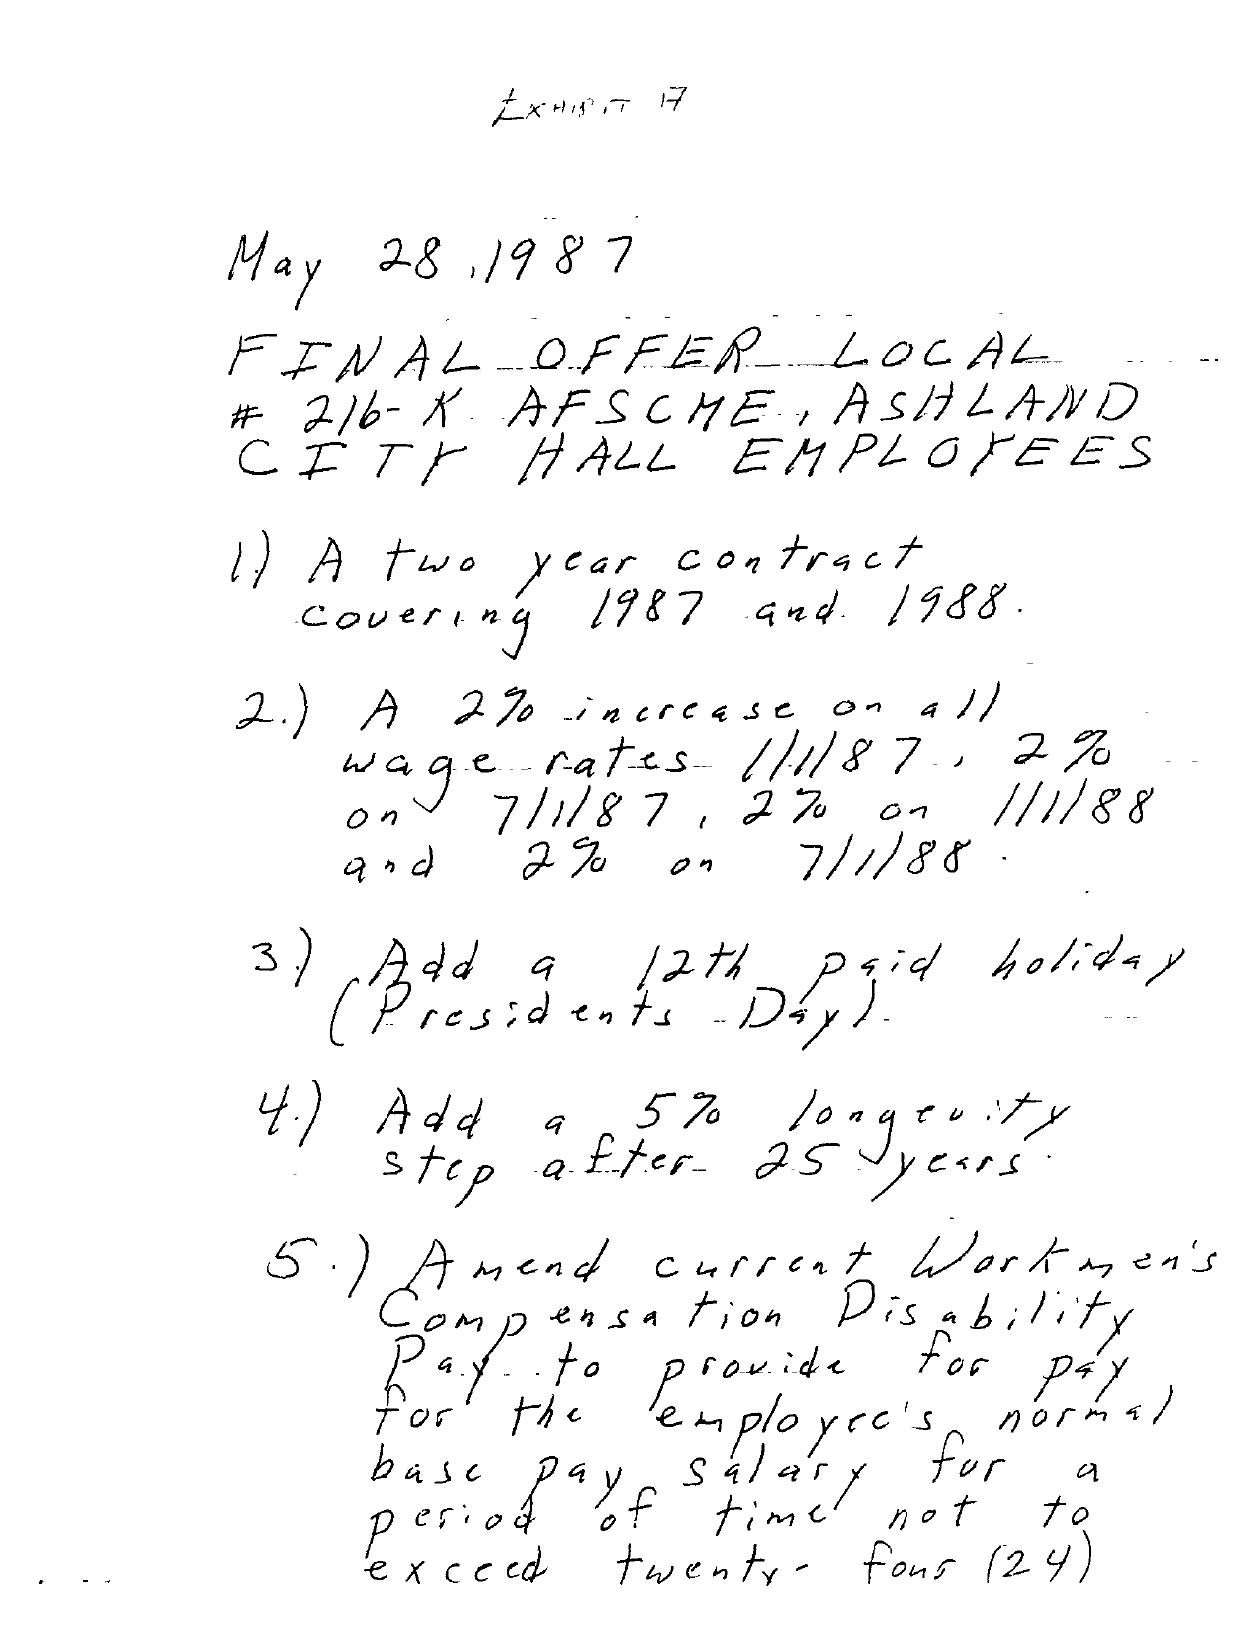 EXHIBIT 17
May 28, 1987
FINAL OFFER LOCAL
# 216-K AFSCME, ASHLAND
CITY HALL EMPLOYEES
1.) A two year contract
covering 1987 and 1988.
2.) A 2% increase on all
wage rates 1/1/87, 2%
on 7/1/87, 2% on 1/1/88
and 2% on 7/1/88.
3.) Add a 12th paid holiday
(Presidents Day).
4.) Add a 5% longevity
step after 25 years.
5.) Amend current Workmen's
Compensation Disability
Pay to provide for pay
for the employee's normal
base pay salary for a
period of time not to
exceed twenty-four (24)